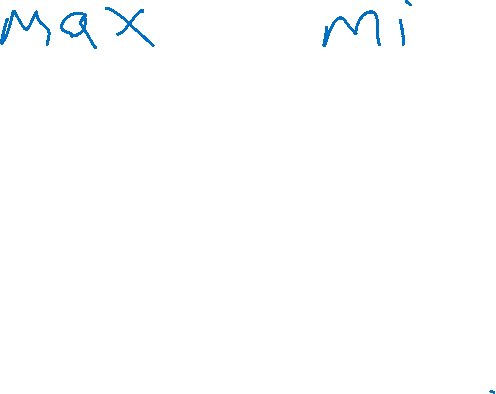 max mi